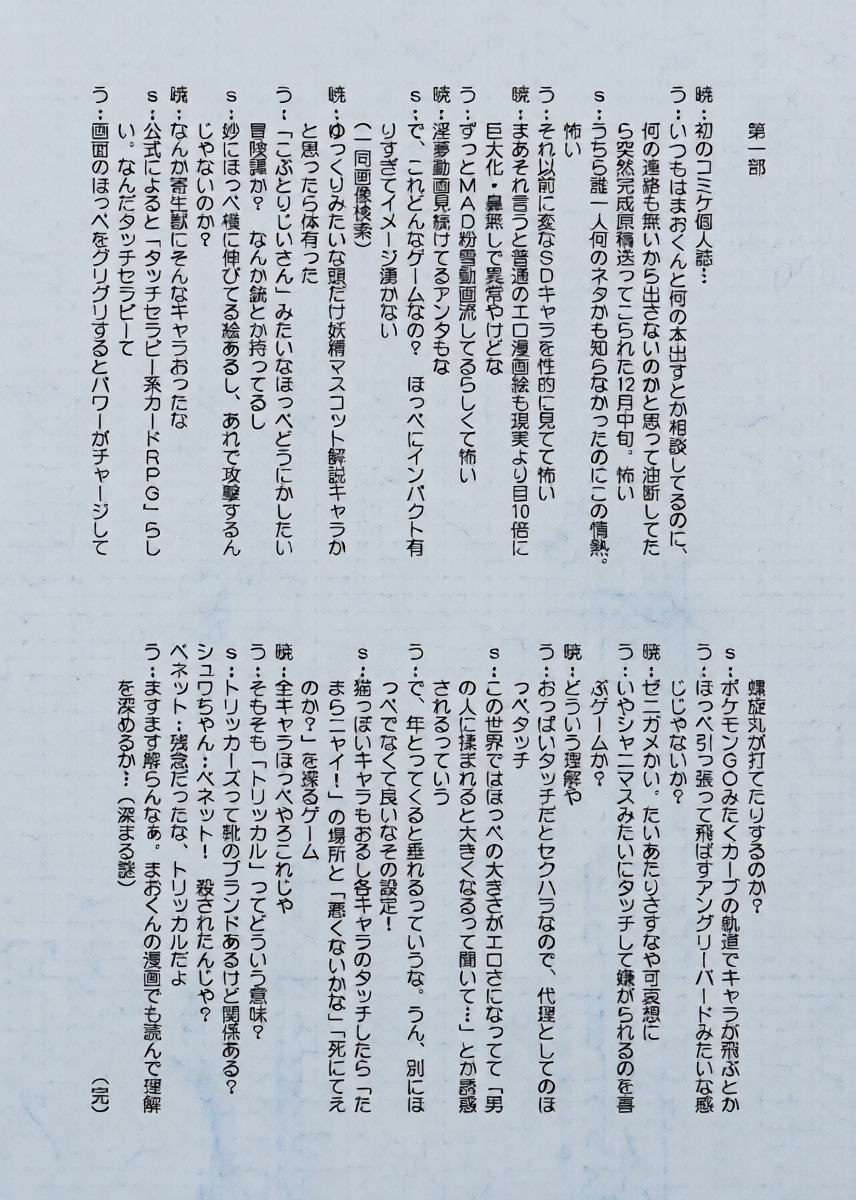 第一部
暁：初のコミケ個人誌…
う：いつもはまおくんと何の本出すとか相談してるのに、
何の連絡も無いから出さないのかと思って油断してた
ら突然完成原稿送ってこられた12月中旬。怖い
s：うちら誰一人何のネタかも知らなかったのにこの情熱。
怖い
う：それ以前に変なSDキャラを性的に見てて怖い
暁：まあそれ言うと普通のエロ漫画絵も現実より目10倍に
巨大化・鼻無しで異常やけどな
う：ずっとMAD粉雪動画流してるらしくて怖い
暁：淫夢動画見続けてるアンタもな
s：で、これどんなゲームなの？　ほっぺにインパクト有
りすぎてイメージ湧かない
（一同画像検索）
暁：ゆっくりみたいな頭だけ妖精マスコット解説キャラか
と思ったら体有った
う：「こぶとりじいさん」みたいなほっぺどうにかしたい
冒険譚か？　なんか銃とか持ってるし
s：妙にほっぺ横に伸びてる絵あるし、あれで攻撃するん
じゃないのか？
暁：なんか寄生獣にそんなキャラおったな
s：公式によると「タッチセラピー系カードRPG」らし
い。なんだタッチセラピーて
う：画面のほっぺをグリグリするとパワーがチャージして
螺旋丸が打てたりするのか？
s：ポケモンGOみたくカーブの軌道でキャラが飛ぶとか
う：ほっぺ引っ張って飛ばすアングリーバードみたいな感
じじゃないか？
暁：ゼニガメかい。たいあたりさすなや可哀想に
う：いやシャニマスみたいにタッチして嫌がられるのを喜
ぶゲームか？
暁：どういう理解や
う：おっぱいタッチだとセクハラなので、代理としてのほ
っぺタッチ
s：この世界ではほっぺの大きさがエロさになってて「男
の人に揉まれると大きくなるって聞いて…」とか誘惑
されるっていう
う：で、年とってくると垂れるっていうな。うん、別にほ
っぺでなくて良いなその設定！
s：猫っぽいキャラもおるし各キャラのタッチしたら「た
まらニャイ！」の場所と「悪くないかな」「死にてえ
のか？」を探るゲーム
暁：全キャラほっぺやろこれじゃ
う：そもそも「トリッカル」ってどういう意味？
s：トリッカーズって靴のブランドあるけど関係ある？
シュワちゃん：ベネット！　殺されたんじゃ？
ベネット：残念だったな、トリッカルだよ
う：ますます解らんなぁ。まおくんの漫画でも読んで理解
を深めるか…（深まる謎）
（完）